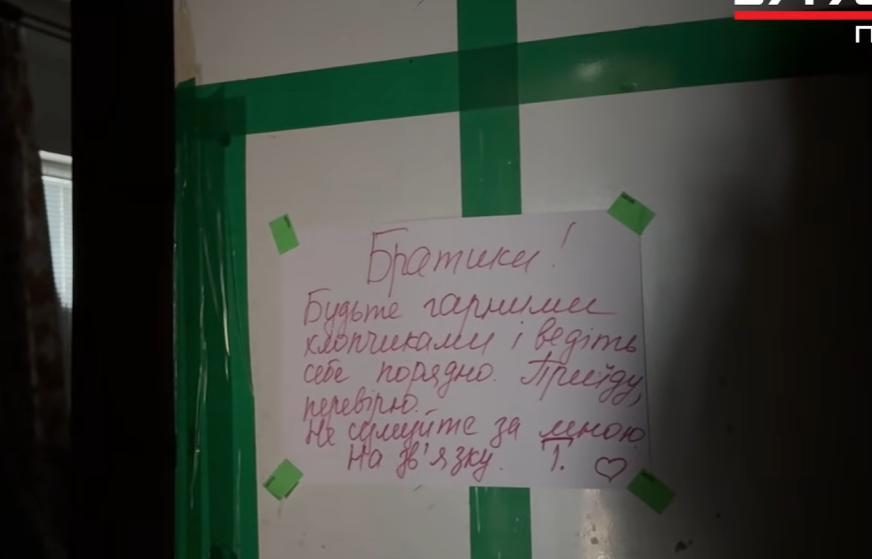 Братики!
Будьте гарними
хлопчиками і ведіть
себе порядно. Приїду,
перевірю.
Не сумуйте за мною
На зв'язку. Т. ♡